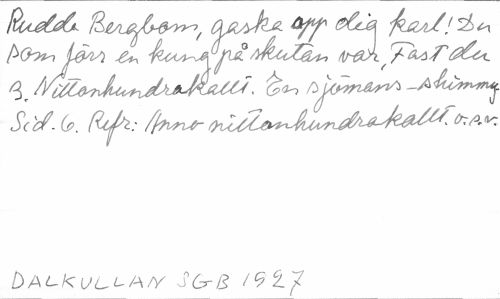 Rudda Bergbom, gaska opp dig karl! Du
som förr en kung på skutan var, Fast du
3. Nittonhundrakallt. En sjömans-shimmy
Sid. 6. Refr: Anno nittonhundrakallt. o.s.v.
DALKULLAN SGB 1927